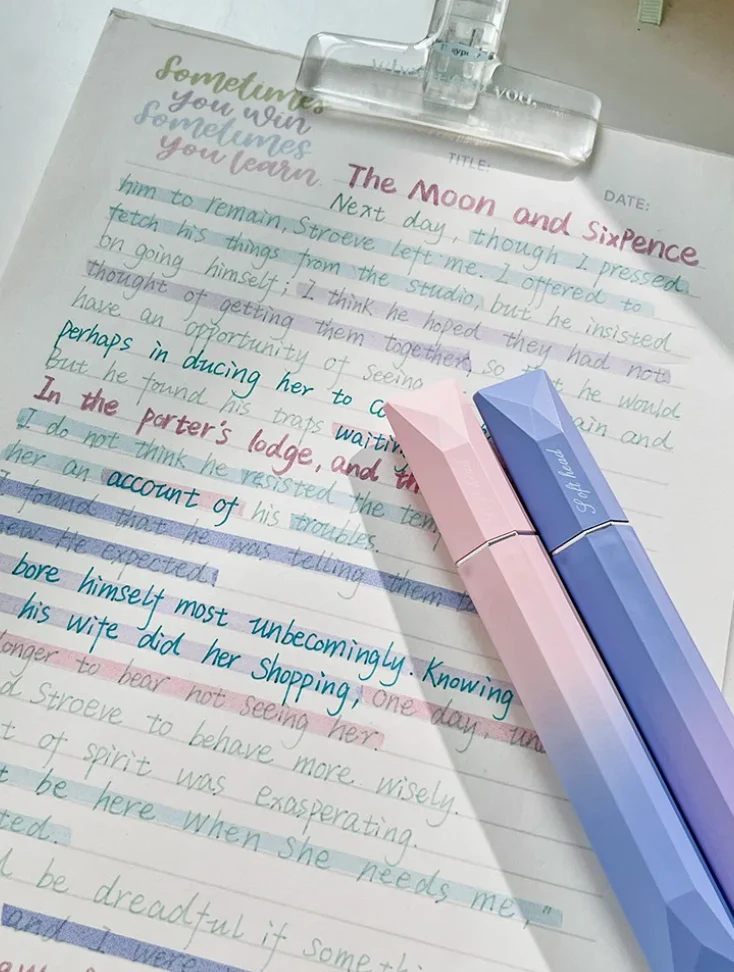 you.
Sometimes
you win
Sometimes
you learn.
TITLE:
DATE:
The Moon and SixPence
Next day, though I pressed
him to remain, Stroeve left me. I offered to
fetch his things from the studio, but he insisted
on going himself; I think he hoped they had not
thought of getting them together, so he would
have an opportunity of seeing ain and
perhaps in ducing her to
But he found his traps waitin
In the porter's lodge, and th
I do not think he resisted the tem
her an account of his troubles.
I found that he was telling them
ew. He expected
bore himself most unbecomingly. Knowing
his wife did her shopping, one day, un
onger to bear not seeing her.
d Stroeve to behave more wisely.
t of spirit was exasperating.
t be here when she needs me,"
ted.
l be dreadful if somethi
and I were
Soft head